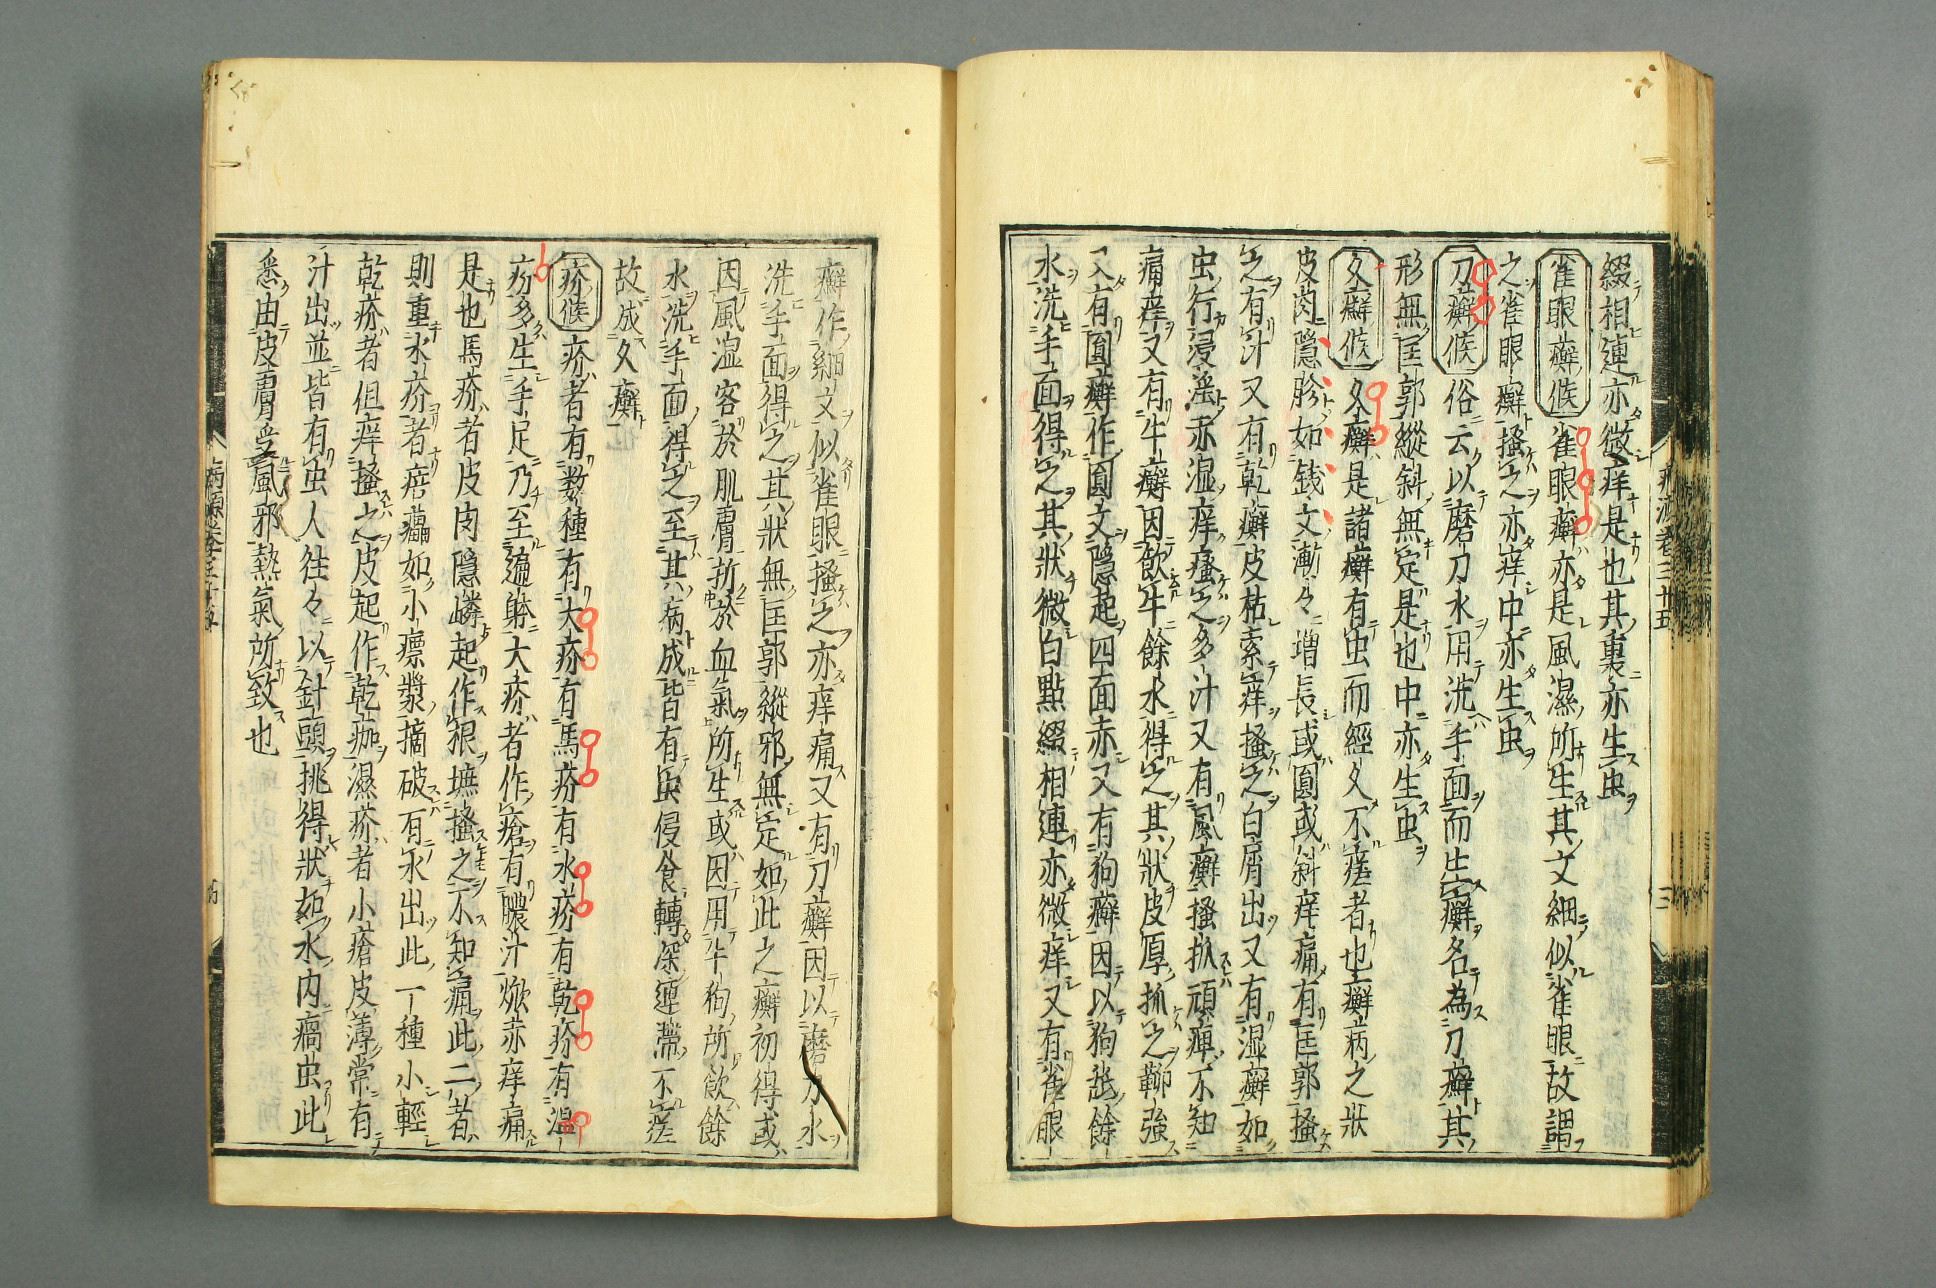 綴相連亦微痒是也其裏亦生虫
雀眼癬候 雀眼癬亦是風濕所生其文細似雀眼故謂
之雀眼癬搔之亦痒中亦生虫
刀癬候 俗云以磨刀水用洗手面而生癬名為刀癬其
形無匡郭縱斜無定是也中亦生虫
久癬候 久癬是諸癬有虫而經久不瘥者也癬病之狀
皮肉隱胗如錢文漸々增長或圓或斜痒痛有匡郭搔
之有汁又有乾癬皮枯索痒搔之白屑出又有湿癬如
虫行浸淫赤湿痒瘙之多汁又有風癬搔抓頑痺不知
痛痒又有牛癬因飲牛餘水得之其狀皮厚抓之鞕強
又有圓癬作圓文隱起四面赤又有狗癬因以狗舐餘
水洗手面得之其狀微白點綴相連亦微痒又有雀眼
癬作細文似雀眼搔之亦痒痛又有刀癬因以磨刀水
洗手面得之其狀無匡郭縱邪無定如此之癬初得或
因風湿客於肌膚折於血氣所生或因用牛狗所飲餘
水洗手面得之至其病成皆有虫侵食轉深連滯不瘥
故成久癬
疥候 疥者有数種有大疥有馬疥有水疥有乾疥有湿
疥多生手足乃至遍躰大疥者作瘡有膿汁焮赤痒痛
是也馬疥者皮肉隱嶙起作根墌搔之不知痛此二者
則重水疥者㾦㿔如小瘭漿摘破有水出此一種小輕
乾疥者但痒搔之皮起作乾痂濕疥者小瘡皮薄常有
汁出並皆有虫人往々以針頭挑得狀如水内瘑虫此
悉由皮膚受風邪熱氣所致也
病源卷三十五
三